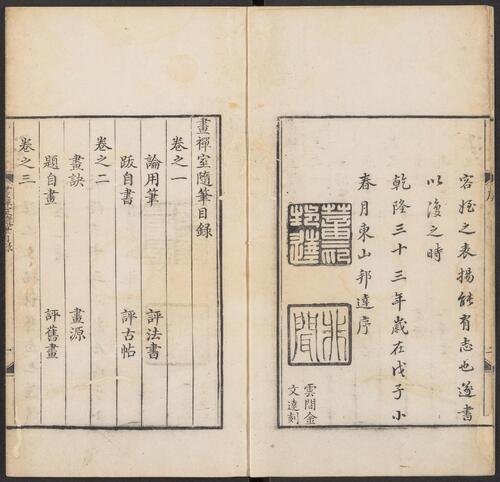 容姪之表揚能有志也遂書
以復之時
乾隆三十三年歲在戊子小
春月東山邦達序
雲間金
文達刻
畫禪室隨筆目録
卷之一
論用筆　評法書
跋自書　評古帖
卷之二
畫訣　畫源
題自畫　評舊畫
卷之三